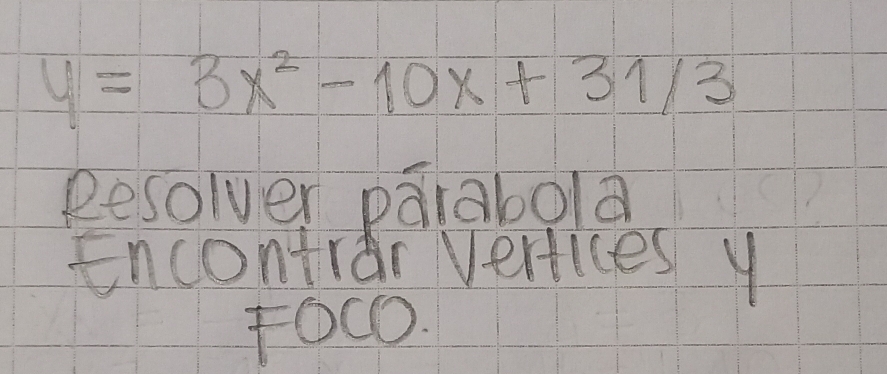 y = 3x² - 10x + 31/3
Resolver párabola
Encontrar vertices y
Foco.